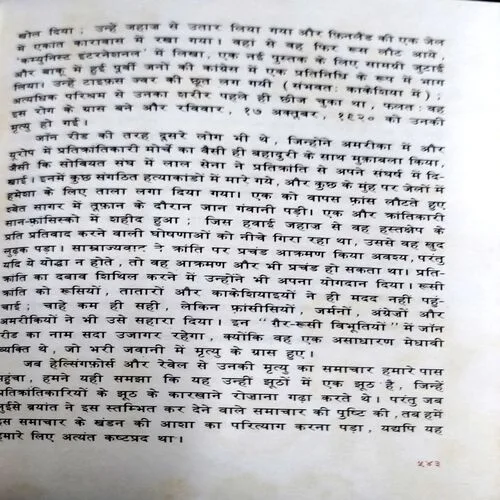 खोल दिया; उन्हें जहाज से उतार लिया गया और फ़िनलैंड की एक जेल
में एकांत कारावास में रखा गया। वहां से वह फिर रूस लौट आये,
'कम्युनिस्ट इंटरनेशनल' में लिखा, एक नई पुस्तक के लिए सामग्री जुटाई
और बाकू में हुई पूर्वी जनों की कांग्रेस में एक प्रतिनिधि के रूप में भाग
लिया। उन्हें टाइफ़स ज्वर की छूत लग गयी (संभवतः काकेशिया में);
अत्यधिक परिश्रम से उनका शरीर पहले ही छीज चुका था, फलतः वह
इस रोग के ग्रास बने और रविवार, १७ अक्तूबर, १९२० को उनकी
मृत्यु हो गई।
जॉन रीड की तरह दूसरे लोग भी थे, जिन्होंने अमरीका में और
यूरोप में प्रतिक्रांतिकारी मोर्चे का वैसी ही बहादुरी के साथ मुक़ाबला किया,
जैसी कि सोवियत संघ में लाल सेना ने प्रतिक्रांति से अपने संघर्ष में दि-
खाई। इनमें कुछ संगठित हत्याकांडों में मारे गये, और कुछ के मुंह पर जेलों में
हमेशा के लिए ताला लगा दिया गया। एक को वापस फ़्रांस लौटते हुए
श्वेत सागर में तूफ़ान के दौरान जान गंवानी पड़ी। एक और क्रांतिकारी
सान-फ़्रांसिस्को में शहीद हुआ; जिस हवाई जहाज से वह हस्तक्षेप के
प्रति प्रतिवाद करने वाली घोषणाओं को नीचे गिरा रहा था, उससे वह खुद
लुढ़क पड़ा। साम्राज्यवाद ने क्रांति पर प्रचंड आक्रमण किया अवश्य, परंतु
यदि ये योद्धा न होते, तो वह आक्रमण और भी प्रचंड हो सकता था। प्रति-
क्रांति का दबाव शिथिल करने में उन्होंने भी अपना योगदान दिया। रूसी
क्रांति को रूसियों, तातारों और काकेशियाइयों ने ही मदद नहीं पहुं-
चाई; चाहे कम ही सही, लेकिन फ़्रांसीसियों, जर्मनों, अंग्रेजों और
अमरीकियों ने भी उसे सहारा दिया। इन "ग़ैर-रूसी विभूतियों" में जॉन
रीड का नाम सदा उजागर रहेगा, क्योंकि वह एक असाधारण मेधावी
व्यक्ति थे, जो भरी जवानी में मृत्यु के ग्रास हुए।
जब हेल्सिंगफ़ोर्स और रेवेल से उनकी मृत्यु का समाचार हमारे पास
पहुंचा, हमने यही समझा कि यह उन्हीं झूठों में एक झूठ है, जिन्हें
प्रतिक्रांतिकारियों के झूठ के कारखाने रोजाना गढ़ा करते थे। परंतु जब
लुईसे ब्रयांत ने इस स्तम्भित कर देने वाले समाचार की पुष्टि की, तब हमें
इस समाचार के खंडन की आशा का परित्याग करना पड़ा, यद्यपि यह
हमारे लिए अत्यंत कष्टप्रद था।
५४३